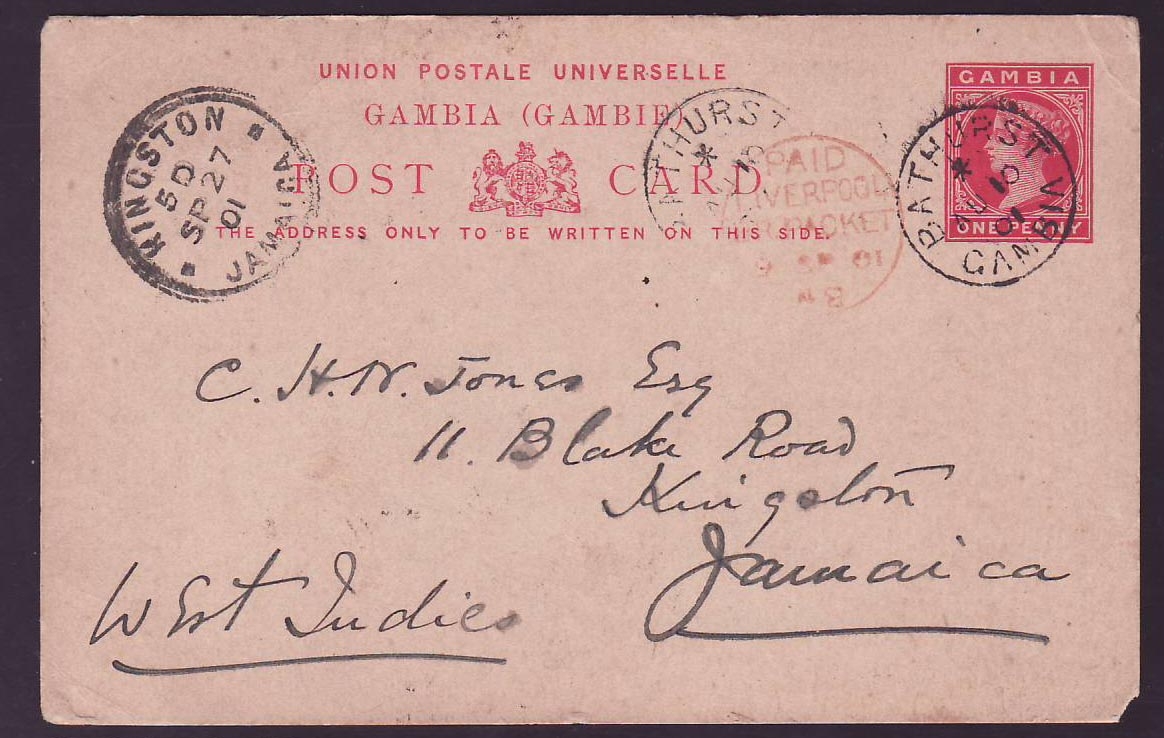 UNION POSTALE UNIVERSELLE
GAMBIA (GAMBIE)
POST CARD
THE ADDRESS ONLY TO BE WRITTEN ON THIS SIDE.
GAMBIA
ONE PENNY
KINGSTON
5 D
SP 27
01
JAMAICA
BATHURST
10
PAID
LIVERPOOL
PACKET
01
BATHURST
AU 10
01
GAMBIA
C. H. N. Jones Esq
11. Blake Road
Kingston
Jamaica
West Indies